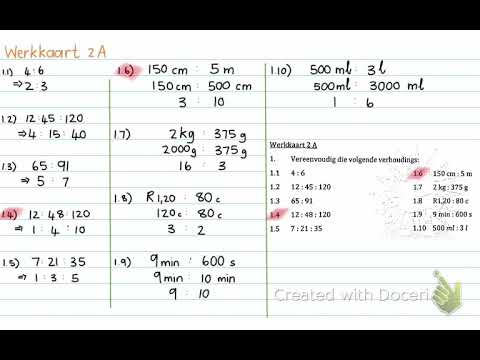 Werkkaart 2A
1.1) 4 : 6
⇒ 2 : 3
1.2) 12 : 45 : 120
⇒ 4 : 15 : 40
1.3) 65 : 91
⇒ 5 : 7
1.4) 12 : 48 : 120
⇒ 1 : 4 : 10
1.5) 7 : 21 : 35
⇒ 1 : 3 : 5
1.6) 150 cm : 5 m
150 cm : 500 cm
3 : 10
1.7) 2 kg : 375 g
2000 g : 375 g
16 : 3
1.8) R1,20 : 80 c
120 c : 80 c
3 : 2
1.9) 9 min : 600 s
9 min : 10 min
9 : 10
1.10) 500 ml : 3 l
500 ml : 3000 ml
1 : 6
Werkkaart 2 A
1. Vereenvoudig die volgende verhoudings:
1.1 4 : 6 1.6 150 cm : 5 m
1.2 12 : 45 : 120 1.7 2 kg : 375 g
1.3 65 : 91 1.8 R1,20 : 80 c
1.4 12 : 48 : 120 1.9 9 min : 600 s
1.5 7 : 21 : 35 1.10 500 ml : 3 l
Created with Doceri